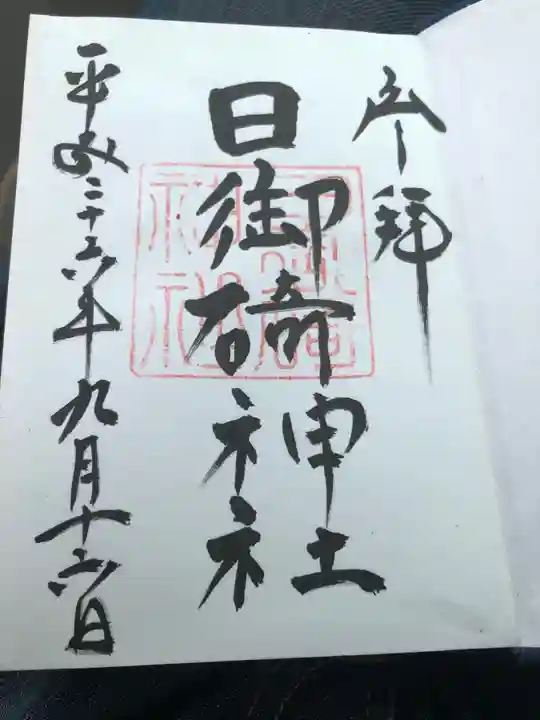 奉拝
日御碕神社
平成二十六年九月十六日
神社